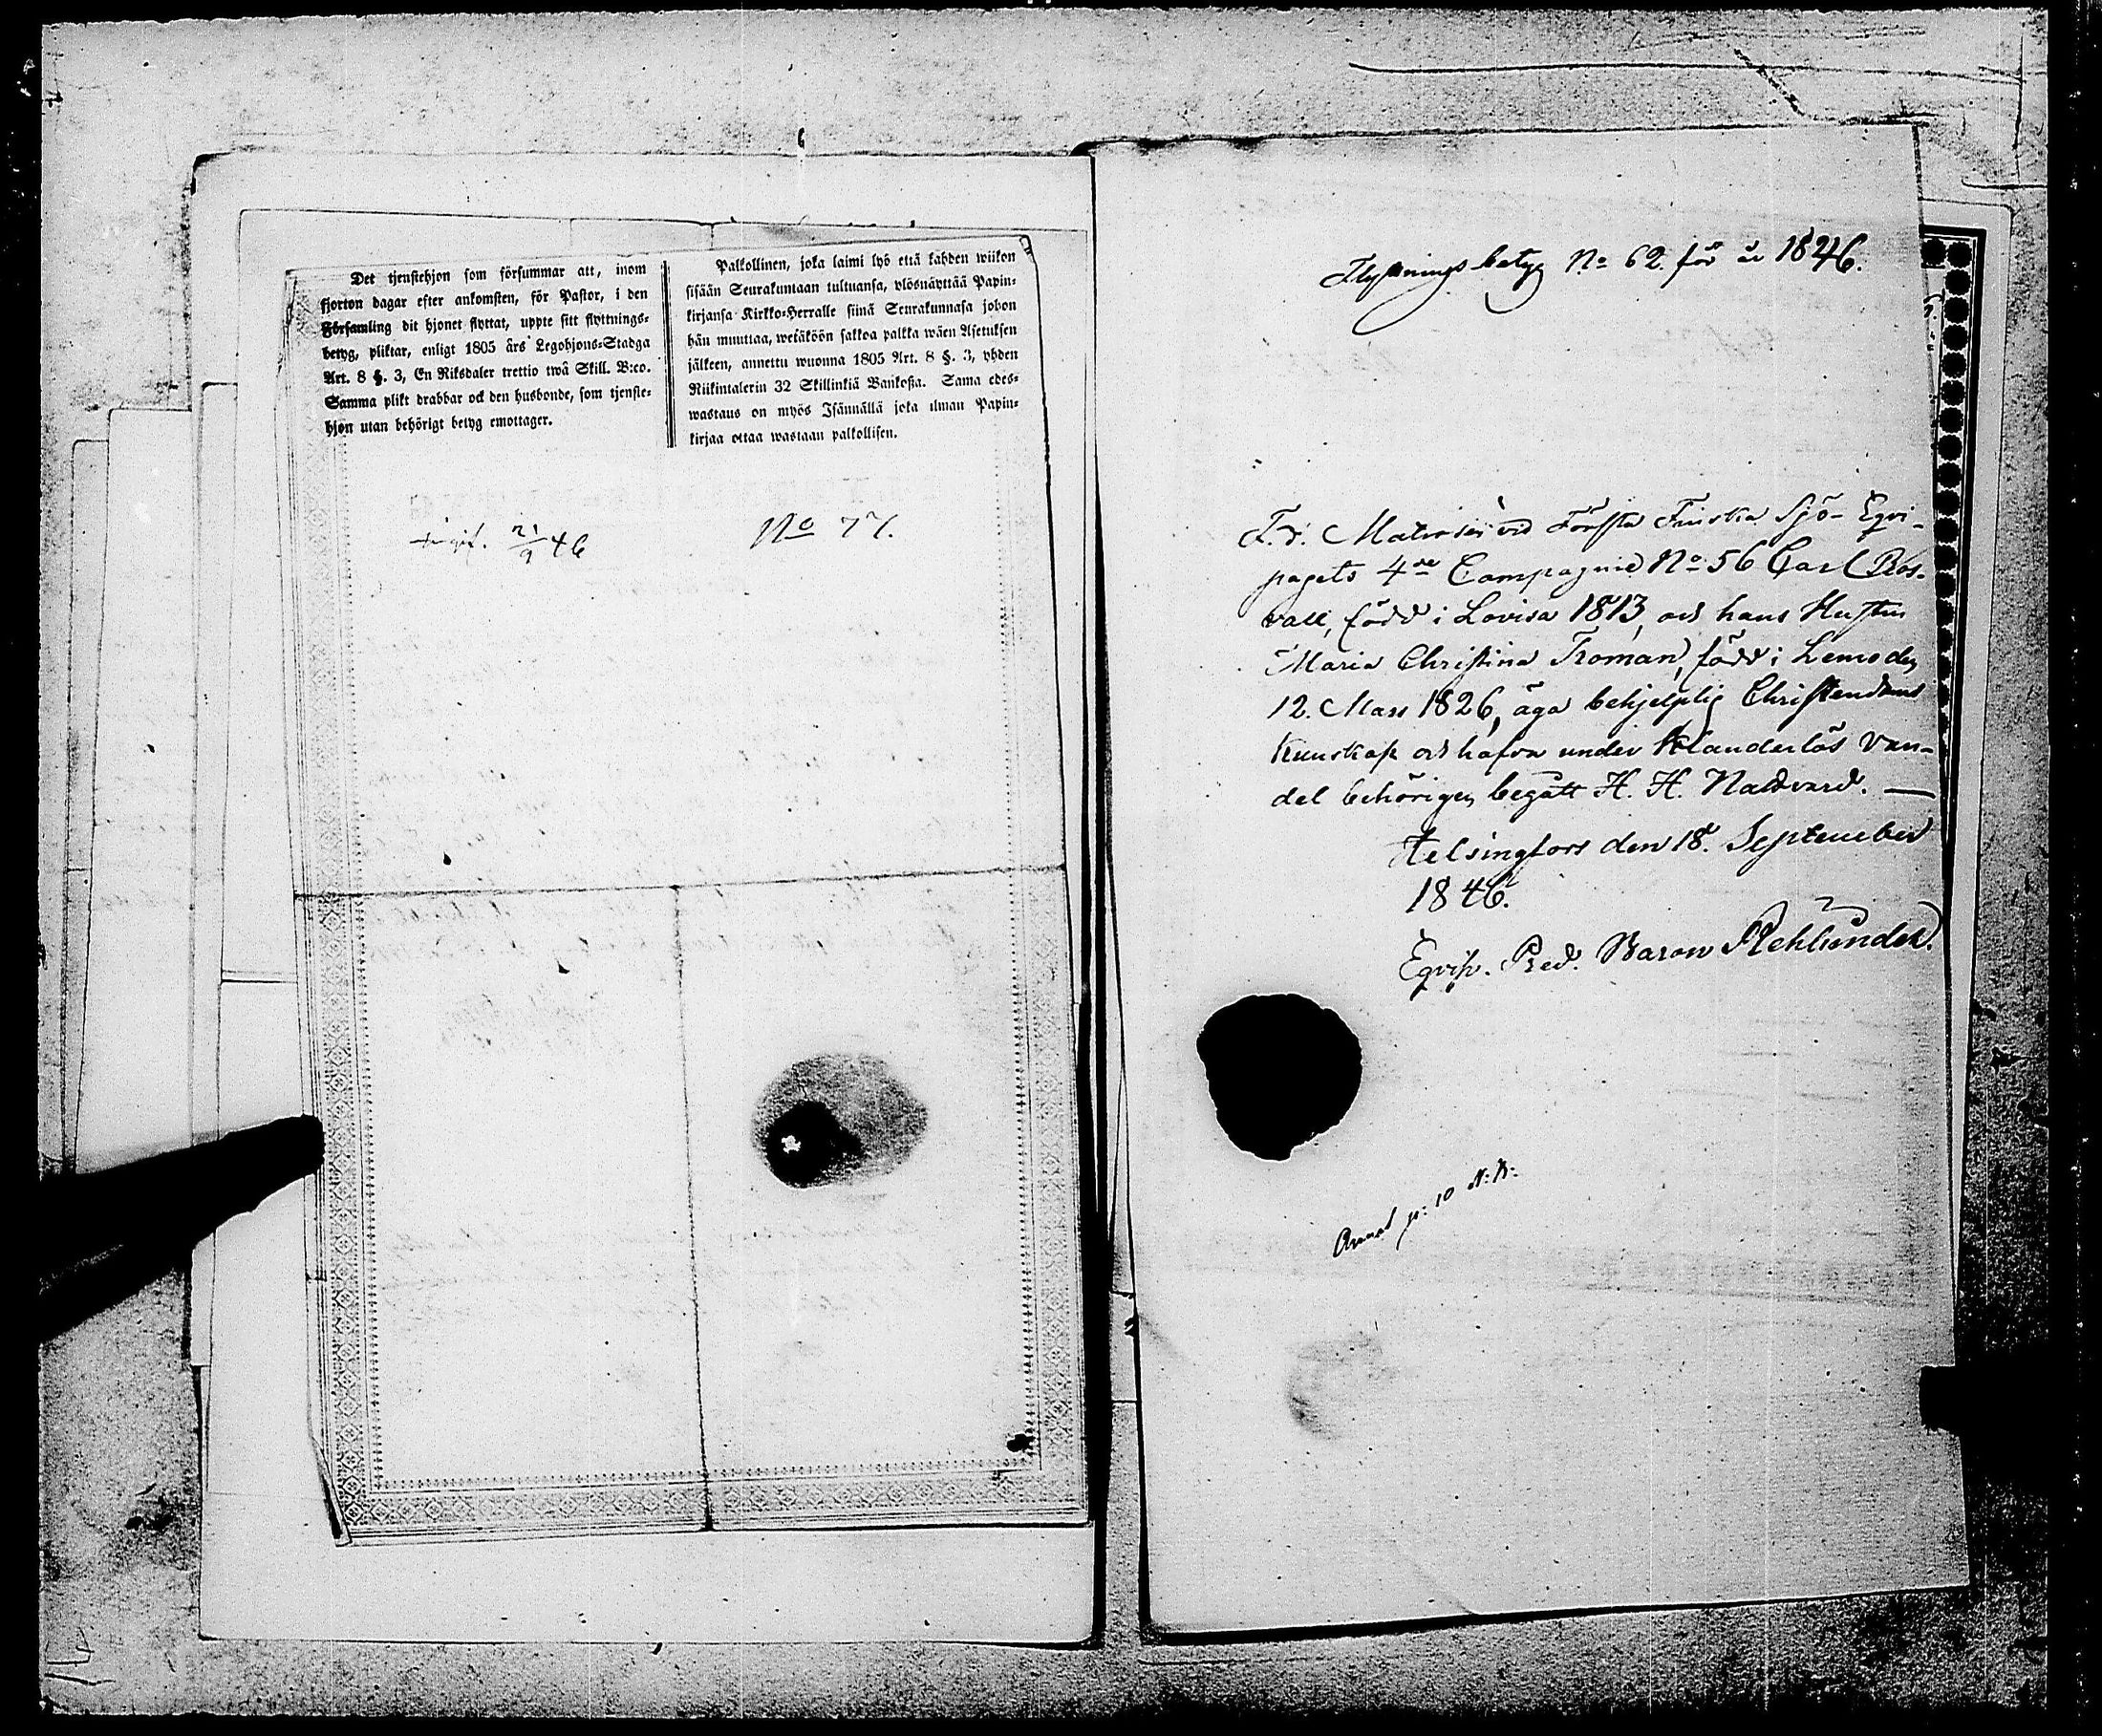 Det tjenstehjon som försummar att, inom
fjorton dagar efter ankomsten, för Pastor, i den
Församling dit hjonet flyttat, uppte sitt flyttnings-
betyg, pliktar, enligt 1805 års Legohjons-Stadga
Art. 8 §. 3, En Riksdaler trettio twå Skill. B:co.
Samma plikt drabbar ock den husbonde, som tjenste-
hjon utan behörigt betyg emottager.
Palkollinen, joka laimi lyö että kahden wiikon
sisään Seurakuntaan tultuansa, ylösnäyttää Papin-
kirjansa Kirkko-Herralle siinä Seurakunnasa johon
hän muuttaa, wetäköön sakkoa palkka wäen Asetuksen
jälkeen, annettu wuonna 1805 Art. 8 §. 3, yhden
Riikintalerin 32 Skillinkiä Bankosta. Sama edes-
wastaus on myös Isännällä joka ilman Papin-
kirjaa ottaa wastaan palkollisen.
ingif. 21/9 46
No 77.
Flyttningsbetyg No 62. för år 1846.
F.d. Matrosen vid Första Finska Sjö-Eqvi-
pagets 4de Compagnie No 56 Carl Ros-
vall, född i Lovisa 1813, och hans Hustru
Maria Christina Troman, född i Lemo den
12. Mars 1826, äga behjelplig Christendoms
kunskap och hafva under klanderlös van-
del behörigen begått H. H. Nattvard. —
Helsingfors den 18. September
1846.
Eqvip. Pred. Baron Rehbinder.
p: 10